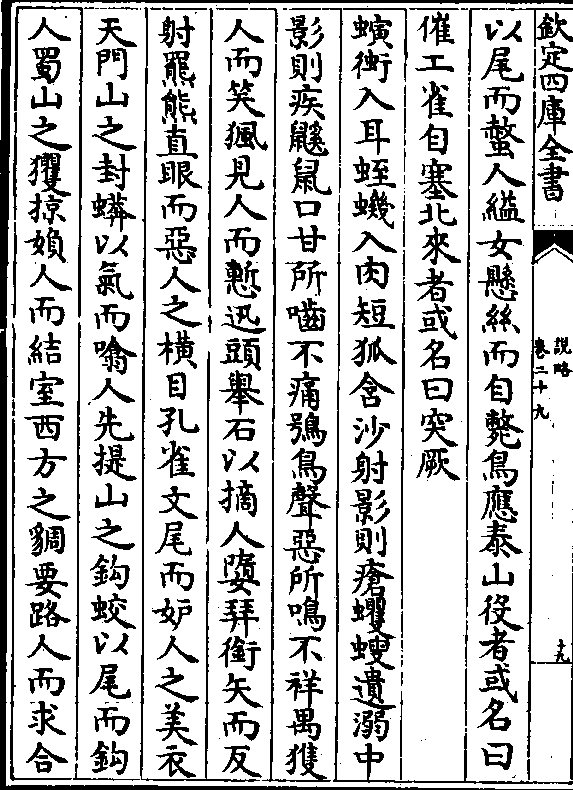 欽定四庫全書
說略
卷二十九
十九
以尾而螫人縊女懸絲而自斃鳥應泰山役者或名曰
傕工雀自塞北來者或名曰突厥
蟥衝入耳蛭蟣入肉短狐含沙射影則瘡蠼螋遺溺中
影則疾鼷鼠口甘所嚙不痛鵶鳥聲惡所鳴不祥禺㺉
人而笑猦見人而慙迅頭舉石以擿人㜞拜銜矢而反
射羆熊直眼而惡人之橫目孔雀文尾而妒人之美衣
天門山之封蟒以氣而噏人先提山之鈎蛟以尾而鈎
人蜀山之玃掠媍人而結室西方之䝞要路人而求合